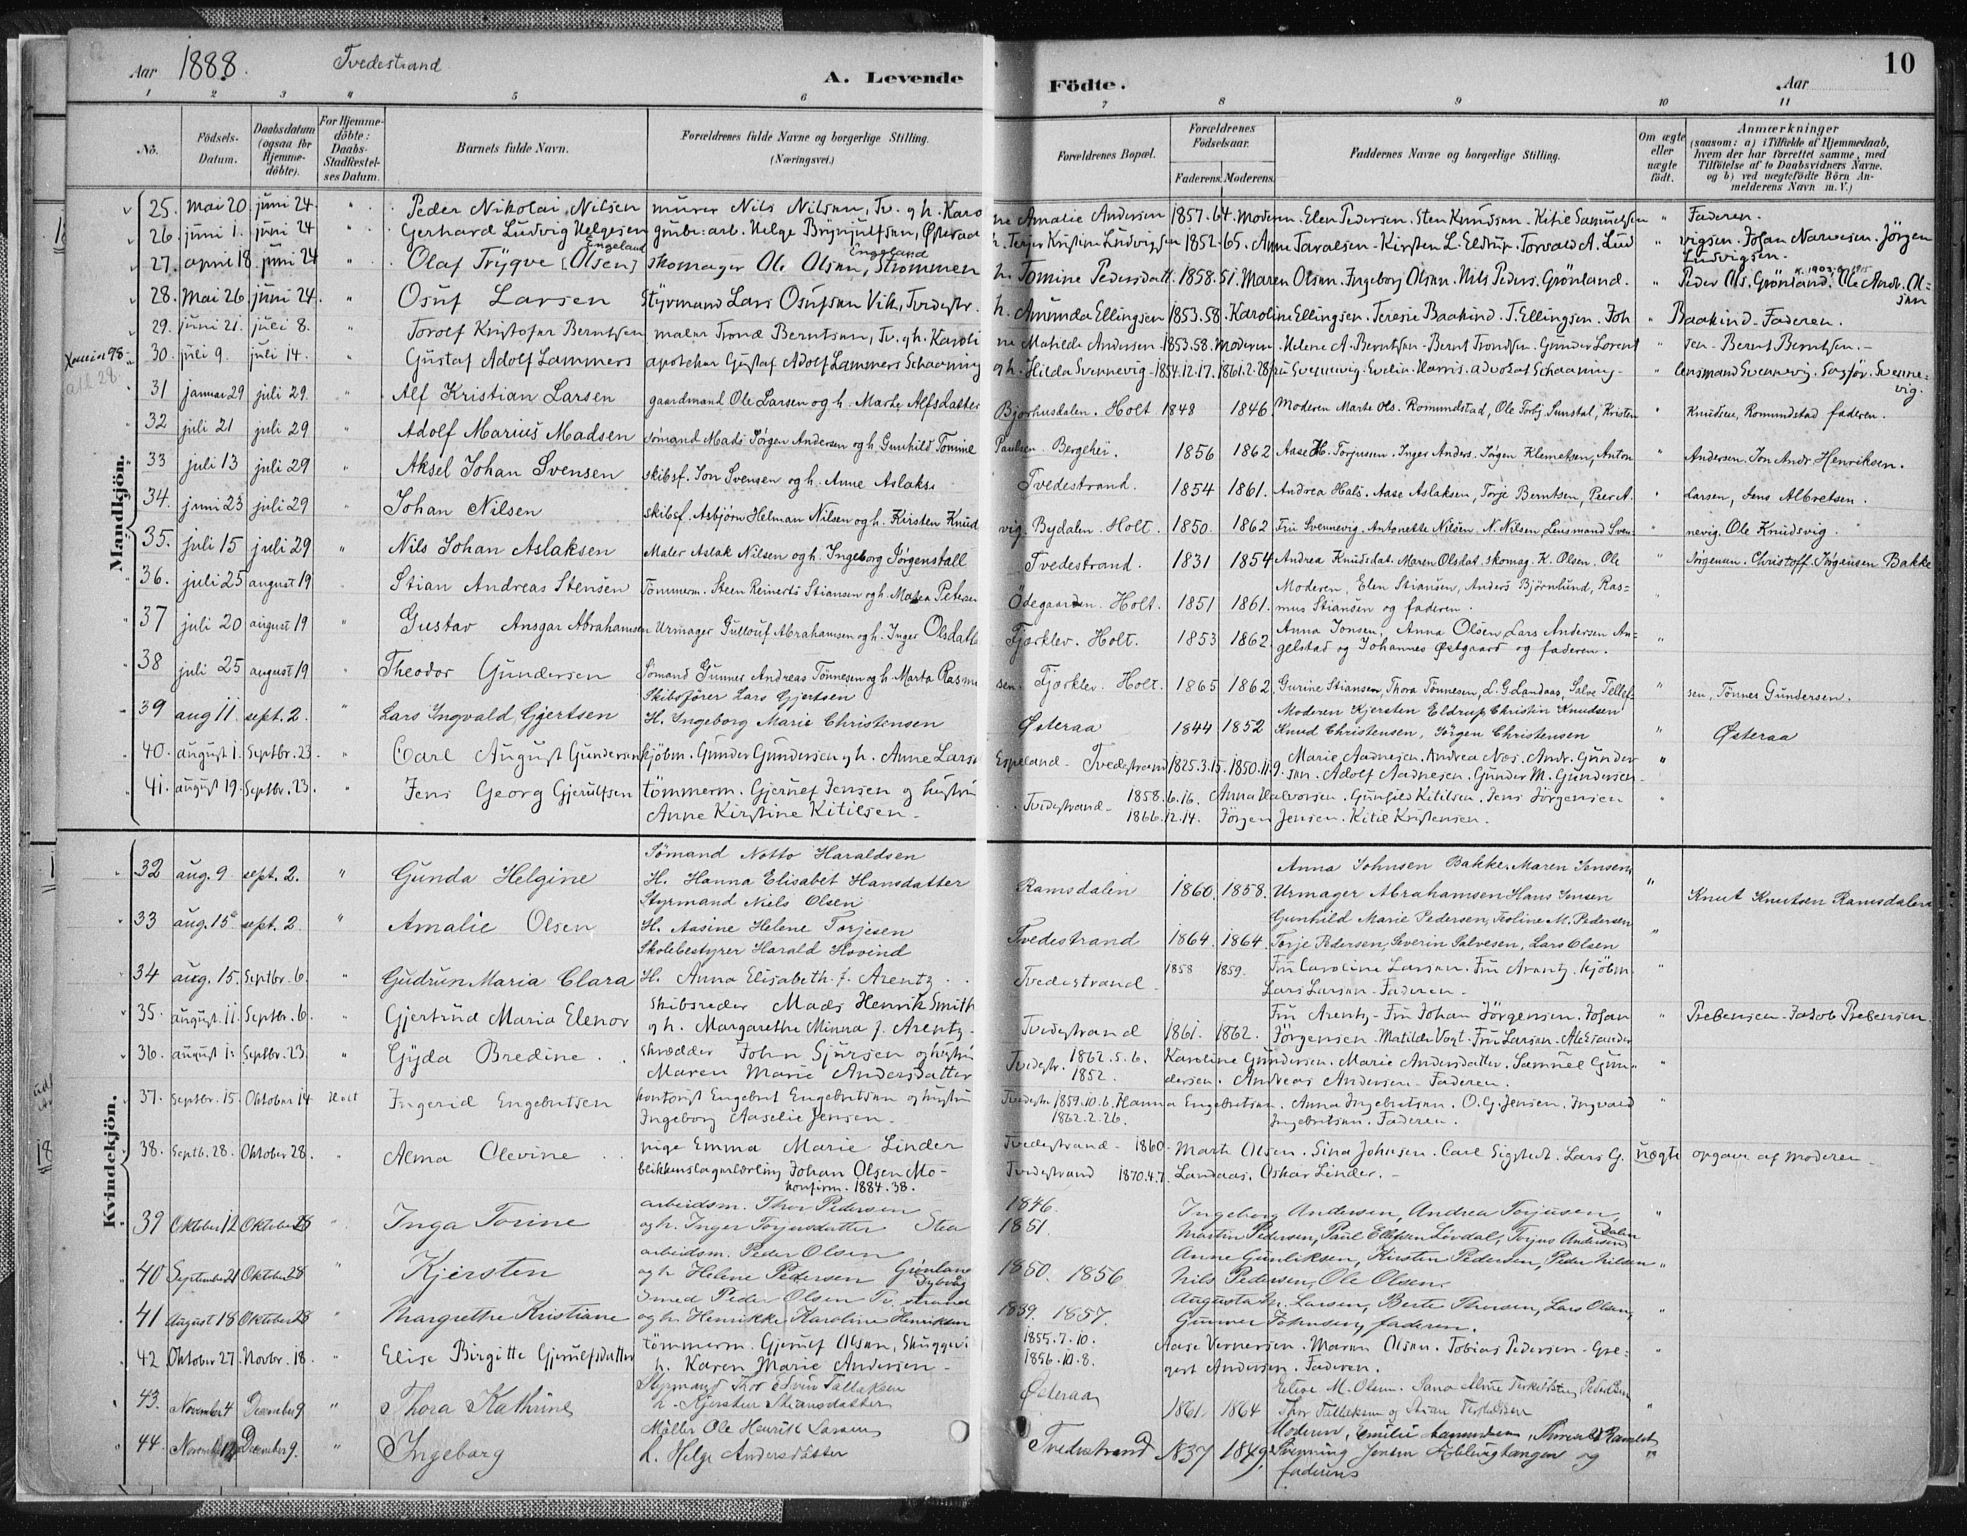 Aar 1888. Tvedestrand A. Levende Födte. Aar 10
1 2 3 4 5 6 7 8 9 10 11
No. Födsels-Datum. Daabsdatum (ogsaa for Hjemmedöbte). For Hjemmedöbte: Daabs-Stadfæstelses Datum. Barnets fulde Navn. Forældrenes fulde Navne og borgerlige Stilling. (Næringsvei.) Forældrenes Bopæl. Forældrenes Födselsaar. Faderens. Moderens. Faddernes Navne og borgerlige Stilling. Om ægte eller uægte födt. Anmærkninger (saasom: a) i Tilfælde af Hjemmedaab, hvem der har forrettet samme, med Tilföielse af to Daabsvidners Navne, og b) ved uægtefödte Börn Anmelderens Navn m. V.)
Mandkjön.
25. mai 20. juni 24. " Peder Nikolai Nilsen murer Nils Nilsen, Tv. og h. Karoline Amalie Andersen 1857. 64. Moderen. Elen Pedersen. Sten Knudsen. Kitie Samuelsen " Faderen.
26. juni 1. juni 24 " Gerhard Ludvig Helgesen grube arb. Helge Brynjulfsen, Østeraa h. Terjer Kristine Ludvigsen 1852. 65. Anne Taralsen. Kirsten L. Eldrup. Torvald A. Lud " vigsen. Johan Narvesen. Jörgen Ludvigsen.
27. april 18. juni 24 Olaf Trygve [Olsen] Engeland skomager Ole Olsen, Strømmen Engeland h. Tomine Pedersdatt. 1858. 51. Maren Olsen. Ingeborg Olsen. Nils Peders. Grönland. " Peder Ols. Grönland. Ole Andr. Olsen
28. Mai 26. juni 24. " Osuf Larsen Styrmand Lars Osufsen Vik, Tvedestr. h. Amunda Ellingsen 1853. 58. Karoline Ellingsen. Terese Baakind. T. Ellingsen. Joh Baakind. Faderen.
29. juni 21. juli 8. " Torolf Kristofer Berntsen maler Trond Berntsen, Tv. og h. Karoline Matilde Andersen 1853. 58. Moderen. Helene A. Berntsen. Bernt Trondsen. Gunder Lorent " sen. Bernt Berntsen.
30. juli 9. juli 14. " Gustaf Adolf Lammers apotheker Gustaf Adolf Lammers Schaaning og h. Hilda Svennevig 1854.12.17. 1861.2.28 fru Svennevig. Evelin Harris. advokat Schaaning. " lensmand Svennevig. Sagför. Svennevig.
31 januar 29 juli 29. " Alf Kristian Larsen gaardmand Ole Larsen og h. Marte Alfsdatter Bjorhusdalen. Holt 1848 1846. Moderen Marte Ols. Romundstad, Ole Torbj Sunstal, Kristen " Knudsen, Romundstad faderen.
32 juli 21 juli 29 " Adolf Marius Madsen sömand Mads Jörgen Andersen og h. Gunhild Tomine Paulsen. Bergehei. 1856 1862 Aase H. Torjussen. Inger Anders. Jörgen Klemetsen, Anton " Andersen. Jon Andr Henriksen.
33 juli 13 juli 29 " Aksel Johan Svensen skibsf. Jon Svensen og h. Anne Aslaks. Tvedestrand. 1854 1861. Andrea Hals. Aase Aslaksen, Torje Berntsen, Peer A. " Larsen, Jens Albretsen.
34. juni 23 juli 29 " Johan Nilsen skibsf. Asbjörn Helman Nilsen og h. Kirsten Knudsvig. Bydalen. Holt. 1850. 1862 Fru Svennevig. Antonette Nilsen. N. Nilsen, Lensmand Sven- " nevig. Ole Knudsvig.
35. juli 15 juli 29 " Nils Johan Aslaksen Maler Aslak Nilsen og h. Ingeborg Jörgenstall Tvedestrand. 1831 1854 Andrea Knudsdat. Maren Olsdat. skomag. K. Olsen. Ole " Jörgensen. Christoff. Jörgensen Bakke
36. juli 25 august 19 " Stian Andreas Stensen Tömmerm. Steen Reinerts Stiansen og h. Maren Petersen Ödegaarden. Holt. 1851 1861. Moderen, Elen Stiansen, Anders Björnlund, Rasmus Stiansen og faderen. "
37 juli 20 august 19 " Gustav Ansgar Abrahamsen Urmager Gullouf Abrahamsen og h. Inger Olsdatter Fjærklev. Holt. 1853 1862. Anna Jonsen, Anna Olsen Lars Andersen Angelstad og Johannes Østgaard og faderen. "
38 juli 25 august 19 " Theodor Gundersen Sömand Gunner Andreas Tönnesen og h. Marta Rasmussen. Fjærklev. Holt. 1865 1862. Gurine Stiansen, Thora Tönnesen, L. G. Landaas, Salve Tellef- " sen, Tönnes Gundersen.
39 aug 11. sept. 2. " Lars Ingvald Gjertsen Skibsförer Lars Gjertsen H. Ingeborg Marie Christensen Østeraa 1844 1852 Moderen Kjersten Eldrup Christin Knudsen Knud Christensen, Jörgen Christensen " Østeraa
40. august 1. Septbr. 23. " Carl August Gundersen kjöbm. Gunder Gundersen og h. Anne Larsen Espeland. Tvedestrand 1825.3.15. 1850.11.9. Marie Aadnesen. Andrea Næs. Andr. Gundersen. Adolf Aadnesen. Gunder M. Gundersen. "
41. august 19. Septbr. 23. " Jens Georg Gjerulfsen tömmerm. Gjeruef Jensen og hustru Anne Kirstine Kitilsen. Tvedestrand. 1858.6.16. 1866.12.14. Anna Halvorsen. Gunhild Kitilsen. Jens Jörgensen Jörgen Jensen. Kitil Kristensen. "
Kvindekjön.
32 aug. 9 sept. 2. " Gunda Helgine Sömand Notto Haraldsen H. Hanna Elisabet Hansdatter Ramsdalen 1860. 1858. Anna Johnsen Bakke. Maren Jonsen Urmager Abrahamsen Hans Jensen " Knut Knutsen Ramsdalen
33 aug. 15. sept. 2 " Amalie Olsen Styrmand Niels Olsen H. Aasine Helene Torjesen Tvedestrand 1864. 1864. Gunhild Marie Pedersen, Teoline M. Pedersen Torje Pedersen, Severin Salvesen, Lars Olsen "
34 aug. 15. Septbr. 6. " Gudrun Maria Clara Skolebestyrer Harald Hovind H. Anna Elisabeth f. Arentz Tvedestrand. 1858 1859. Fru Caroline Larsen. Fru Arentz. Kjöbm. Lars Larsen. Faderen. "
35. august 11. Septbr. 6. " Gjertrud Maria Elenor skibsreder Mads Henrik Smith og h. Margarethe Minna f. Arentz. Tvedestrand 1861. 1862. Fru Arentz. Fru Johan Jörgensen. Johan Jörgensen. Matilde Vogt. Fru Larsen. Alexander Prebensen. Jakob Prebensen.
36. august 1. Septbr. 23. " Gyda Bredine skrædder John Sjursen og hustru Maren Marie Andersdatter Tvedestr. 1862.5.6. 1852. Karoline Gundersen. Marie Andersdatter. Samuel Gundersen. Andreas Andersen. Faderen. "
37. Septbr. 15. Oktober 14 Holt Ingerid Engebretsen kontorist Engebret Engebretsen og hustru Ingeborg Aaselie Jensen. Tvedestr. 1859.10.6. 1862.2.26. Hanna Engebretsen. Anna Ingebretsen. O. G. Jensen. Ingvald Ingebretsen. Faderen. "
38. Septb. 28. Oktober 28. " Alma Olevine pige Emma Marie Linder blikkenslagerlærling Johan Olsen Mo- konfirm. 1884. 38. Tvedestrand. 1860. Tvedestrand 1870.4.7. Marth Olsen. Sina Johnsen. Carl Sigstedt. Lars G. Landaas. Oskar Linder. uægte opgave af moderen.
39 Oktober 12 Oktober 28 " Inga Torine arbeidsm. Thor Pedersen og h. Inger Torjusdatter Stea 1846. 1851. Ingeborg Andersen, Andrea Torjusen, Martin Pedersen, Paul Ellefsen Lövdal, Torjus Andersen Dalen "
40 September 21 Oktober 28 Kjersten arbeidsm. Peder Olsen og h. Helene Pedersen Grönland Dybvåg 1850. 1856. Anne Gunliksen, Kirsten Pedersen, Peder Nilsen Nils Pedersen, Ole Olsen. "
41 August 18 Oktober 28 " Margrethe Kristiane Smed Peder Olsen Tv. strand og h. Henrikke Karoline Henriksen 1839. 1857. Augusta M. Larsen, Berte Thorsen, Lars Olsen, Gunner Johnsen, faderen. "
42. Oktober 27. Novbr. 18. " Elise Birgitte Gjerulfsdatter tömmerm. Gjerulf Olsen, Skuggevi h. Karen Marie Andersen. 1855.7.10. 1856.10.8. Aase Vernersen. Maren Olsen. Tobias Pedersen. Gregert Andersen. Faderen. "
43. November 4 December 9 " Thora Kathrine Styrmand Thor Edvin Tallaksen h. Kjersten Stiansdatter Østeraa 1861. 1864 Elise M. Olsen. Thor Tallaksen og "
44. November December 9. " Ingeborg Möller Ole Henrik Larsen h. Helge Andersdatter Tvedestrand 1837 1849. Moderen, Emilie Jensen og faderen "